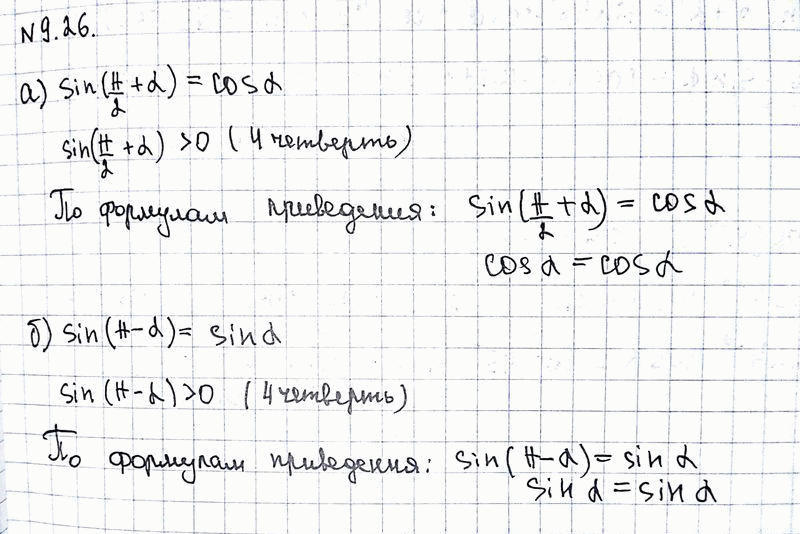 N9.26.
а) sin(π/2 + α) = cos α
sin(π/2 + α) >0 ( 4 четверть)
По формулам приведения: sin(π/2 + α) = cos α
cos α = cos α
б) sin(π-α)= sin α
sin(π-α)>0 ( 4 четверть)
По формулам приведения: sin(π-α)= sin α
sin α = sin α